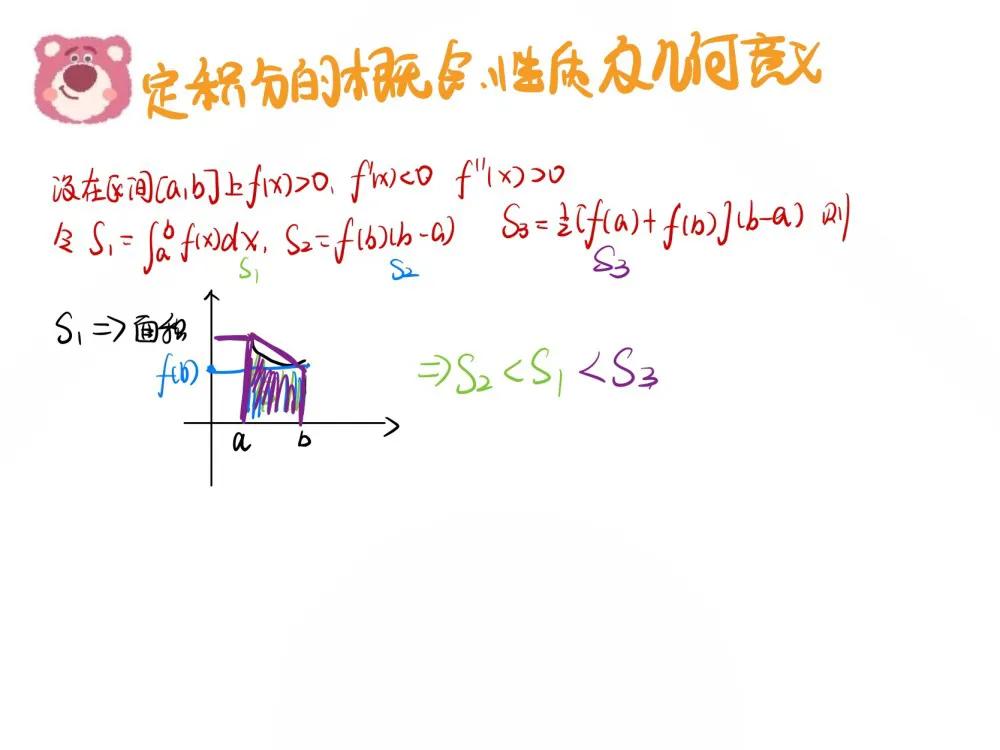 定积分的概念、性质及几何意义
设在区间[a,b]上f(x)>0, f'(x)<0 f''(x)>0
令 S₁=∫ₐᵇf(x)dx, S₂=f(b)(b-a) S₃=½[f(a)+f(b)](b-a) 则
S₁ S₂ S₃
S₁ => 面积
f(b)
=>S₂<S₁<S₃
a b